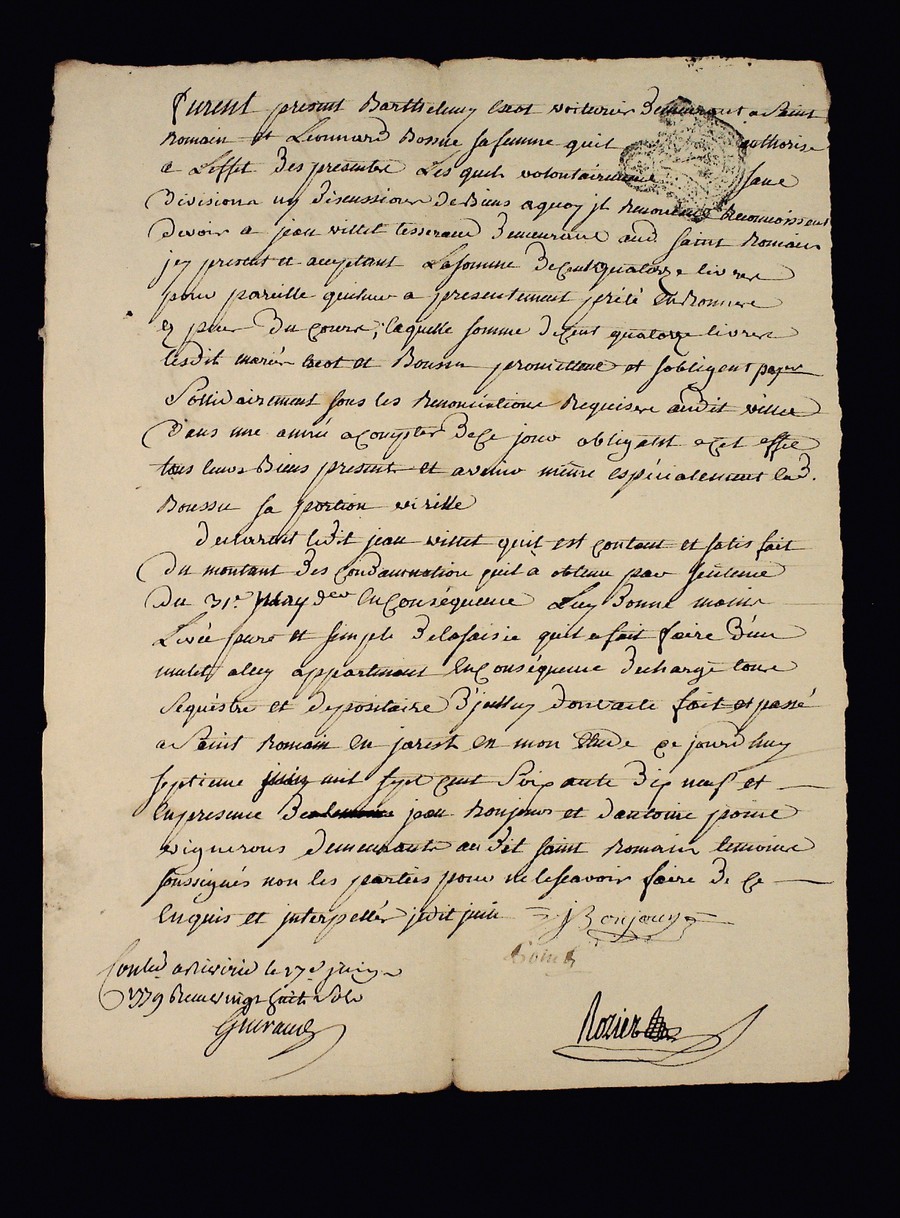 Furent presents Barthelemy voiturier demeurant a Saint
Romain et Leonnard Bossue sa femme quil authorise
a Leffet des presentes Lesquels volontairement sans
division ny discussion de Biens aquoy jl Renoncent Reconnoissent
devoir a jean villet tisserand demeurant aud. Saint Romain
jcy present et aceptant La somme de cent quatorze livres
pour pareille quil leur a presentement prété En
du cours, laquelle somme de cent quatorze livres
lesdit mariés et Boussu promettent et sobligent payer
Sollidairement sous les Renonciations Requises audit villet
dans une année a compter de ce jour obligeant a cet effet
tous leurs Biens presents et avenir même espécialement lad.
Boussu sa portion virille
declarant ledit jean villet quil est contant et satisfait
du montant des condamnations quil a obtenu par sentence
du 31e. may der En conséquence Luy donne main
Levée pure et simple de la saisie quil a fait faire d'un
mulet a luy appartenant En conséquence decharge tous
Séquestre et depositaire d'jcelluy dont acte fait et passé
a Saint Romain En jarest En mon Etude ce jourdhuy
septieme juin mil sept cent Soixante dix neuf et
En presence jean Bonjour et dantoine poine
vignerons demeurants audit Saint Romain temoins
soussignés non les parties pour ne le scavoir faire de ce
Enquis et interpellés
JBonjour
Rozier
Contlé a Riverie le 17e juin
1779 Receu vingt huit Sols
Guiraud